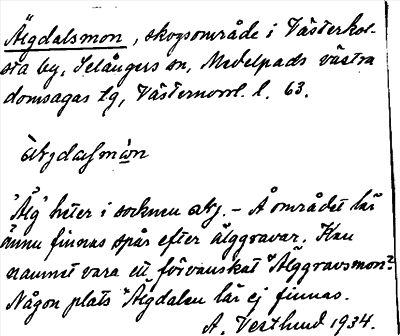 Älgdalsmon, skogsområde i Västerkol-
sta by, Selångers sn, Medelpads västra
domsagas tg, Västernorrl. l. 63.
"Älg" heter i socknen älg. - Å området lär
ännu finnas spår efter älggravar. Kan
namnet vara ett förvanskat "Älggravsmon"?
Någon plats "Älgdalen" lär ej finnas.
A. Vestlund 1934.